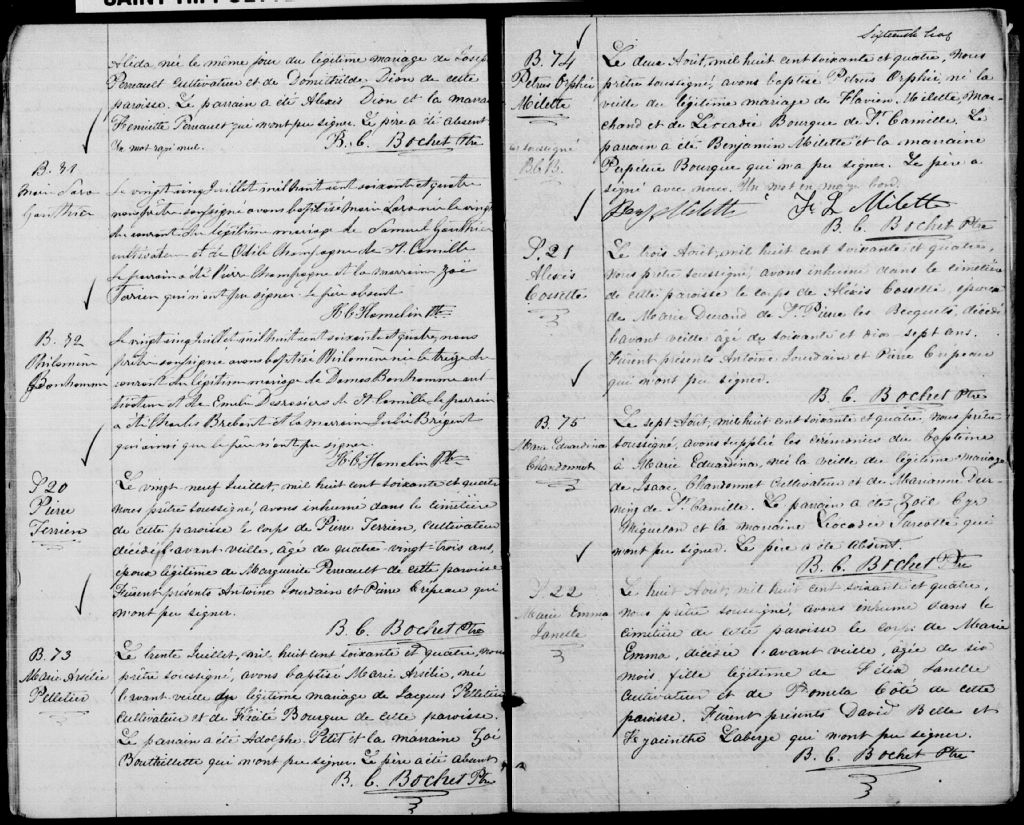 Alida née le même jour du légitime mariage de Joseph
Perreault Cultivateur et de Domithilde Dion de cette
paroisse. Le parrain a été Alexis Dion et la marraine
Henriette Perreault qui n'ont pu signer. Le père a été absent
Un mot rayé nul. B. C. Bochet Ptre
B. 31
Marie Lara
Gauthier
Le vingt cinq Juillet mil huit cent soixante et quatre
nous prêtre soussigné avons baptisé Marie Lara née le vingt
du courant du légitime mariage de Samuel Gauthier
cultivateur et de Odile Champagne de St Camille
le parrain a été Pierre Champagne et la marraine Zoé
Terrien qui n'ont pu signer le père absent
H C Hamelin Ptre
B. 32
Philomène
Bonhomme
Le vingt cinq Juillet mil huit cent soixante et quatre, nous
prêtre soussigné avons baptisé Philomène née le treize du
courant du légitime mariage de Damas Bonhomme cul
tivateur et de Emelie Desrosiers de St Camille le parrain
a été Charles Brebant et la marraine Julie
qui ainsi que le père n'ont pu signer.
H C Hamelin Ptre
S. 20
Pierre
Terrien
Le vingt neuf Juillet, mil huit cent soixante et quatre
nous prêtre soussigné, avons inhumé dans le cimetière
de cette paroisse le corps de Pierre Terrien, Cultivateur
décédé l'avant veille, âgé de quatre-vingt-trois ans,
époux légitime de Marguerite Perreault de cette paroisse
Furent présents Antoine Jourdain et Pierre Crépeau qui
n'ont pu signer.
B. C. Bochet Ptre
B. 73
Marie Arsélie
Pelletier
Le trente Juillet, mil huit cent soixante et quatre, nous
prêtre soussigné, avons baptisé Marie Arsélie, née
l'avant veille du légitime mariage de Jacques Pelletier
Cultivateur et de Bourque de cette paroisse.
Le parrain a été Adolphe Petit et la marraine Zoé
Bouthillette qui n'ont pu signer. Le père a été absent
B. C. Bochet Ptre
B. 74
Petrus Orphié
Milette
Le deux Août, mil huit cent soixante et quatre, Nous
prêtre soussigné, avons baptisé Petrus Orphié, né la
veille du légitime mariage de Flavien Milette, Mar-
chand et de Léocadie Bourque de St Camille. Le
parrain a été Benjamin Milette et la marraine
Perpétue Bourque qui n'a pu signer. Le père a
signé avec nous. Un mot en marge bond.
soussigné
B.C.B.
Benj Milette F L Milette
B. C. Bochet Ptre
S. 21
Alexis
Cossette
Le trois Août, mil huit cent soixante et quatre,
Nous prêtre soussigné, avons inhumé dans le cimetière
de cette paroisse le corps de Alexis Cossette, époux
de Marie Durand de St Pierre les Becquets, décédé
l'avant veille âgé de soixante et dix sept ans.
Furent présents Antoine Jourdain et Pierre Crépeau
qui n'ont pu signer.
B. C. Bochet Ptre
B. 75
Marie Eduardina
Chandonnet
Le sept Août, mil huit cent soixante et quatre, Nous prêtre
soussigné, avons supplié les cérémonies du baptême
à Marie Eduardina, née la veille du légitime mariage
de Isaac Chandonnet Cultivateur et de Marianne Dur-
ning de St Camille. Le parrain a été Zoël Cyr
Miquelon et la marraine Léocadie Turcotte qui
n'ont pu signer. Le père a été absent.
B. C. Bochet Ptre
S. 22
Marie Emma
Janelle
Le huit Août, mil huit cent soixante et quatre,
nous prêtre soussigné, avons inhumé dans le
cimetière de cette paroisse le corps de Marie
Emma, décédée l'avant veille, âgée de six
mois fille légitime de Félix Janelle
Cultivateur et de Pamela Côté de cette
paroisse. Furent présents David Belle et
Hyacinthe Laberge qui n'ont pu signer.
B. C. Bochet Ptre